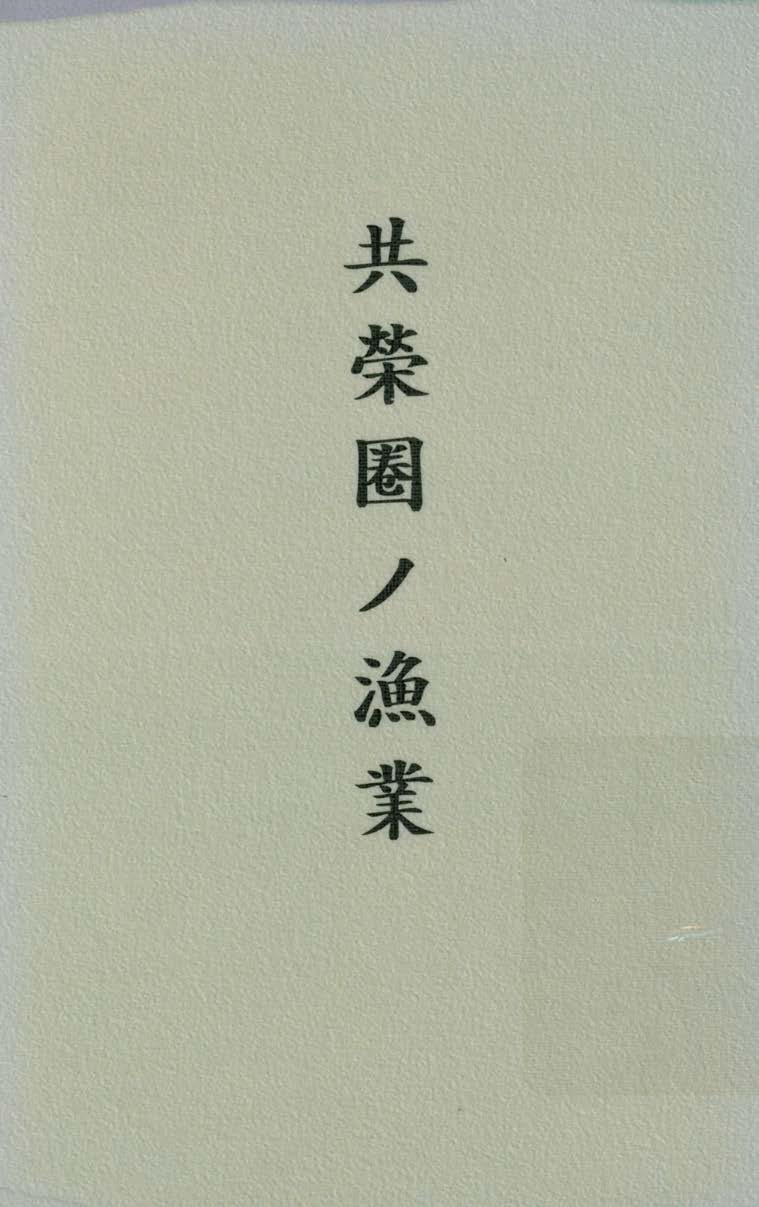 共榮圈ノ漁業